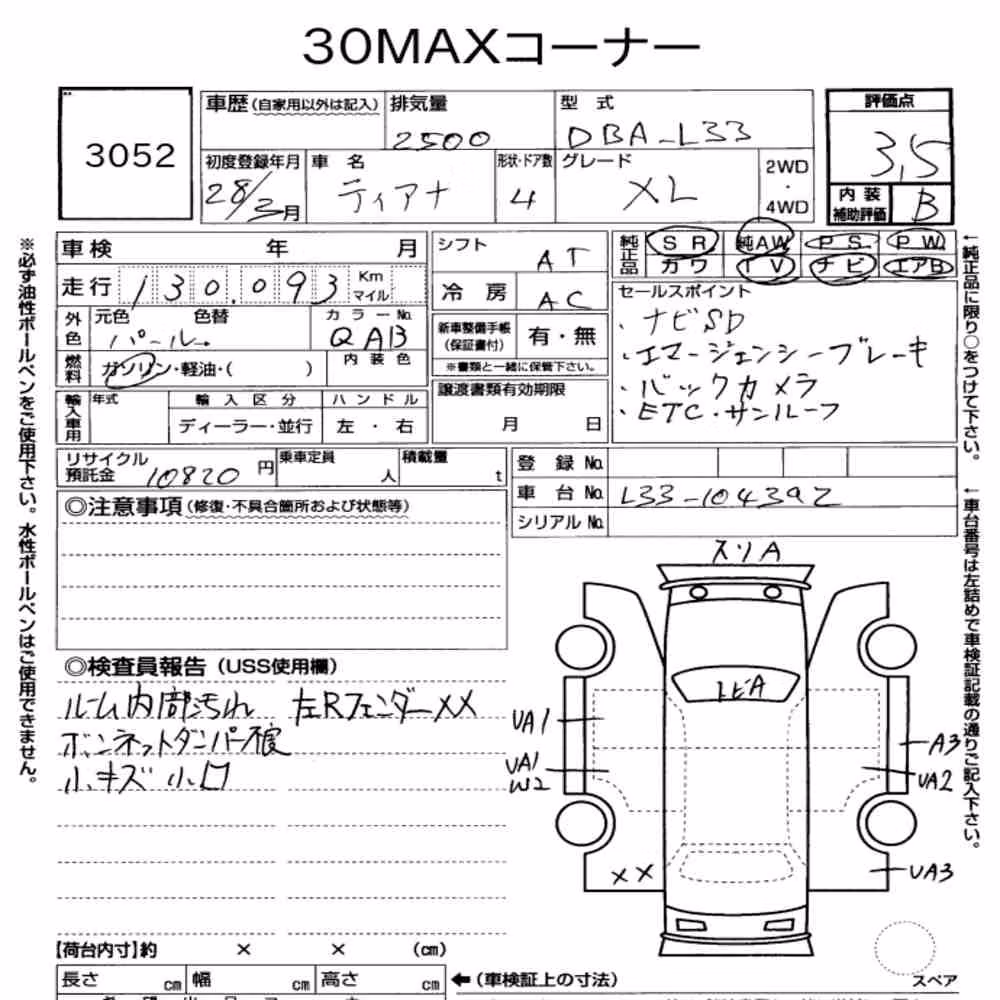 30MAXコーナー
3052
車歴（自家用以外は記入） 排気量 型 式 評価点
2500 DBA-L33 3.5
初度登録年月 車 名 形状・ドア数 グレード 2WD・4WD 内装補助評価
28/3月 ティアナ 4 XL B
車検 年 月 シフト AT 純正品 SR 純AW PS PW
走行 130,093 Km マイル 冷房 AC カワ TV ナビ エアB
外色 元色 色替 カラーNo. 新車整備手帳（保証書付） 有・無
パール QAB
※書類と一緒に保管下さい。
燃料 ガソリン・軽油・( ) 内装色
譲渡書類有効期限
月 日
セールスポイント
・ナビSD
・エマージェンシーブレーキ
・バックカメラ
・ETC・サンルーフ
輸入車用 年式 輸入区分 ハンドル
ディーラー・並行 左・右
リサイクル預託金 10820 円 乗車定員 人 積載量 t
登録No.
車台No. L33-104392
シリアルNo.
◎注意事項（修復・不具合箇所および状態等）
◎検査員報告（USS使用欄）
ルーム内部汚れ 左RフェンダーXX
ボンネットダンパー不良
小キズ 小凹
スリA
トビA
UA1
UA1
W2
A3
UA2
XX
UA3
スペア
【荷台内寸】約 × × (cm)
長さ cm 幅 cm 高さ cm ←（車検証上の寸法）
※必ず油性ボールペンをご使用下さい。水性ボールペンはご使用できません。
←純正品に限り○をつけて下さい。
←車台番号は左詰めで車検証記載の通りご記入下さい。